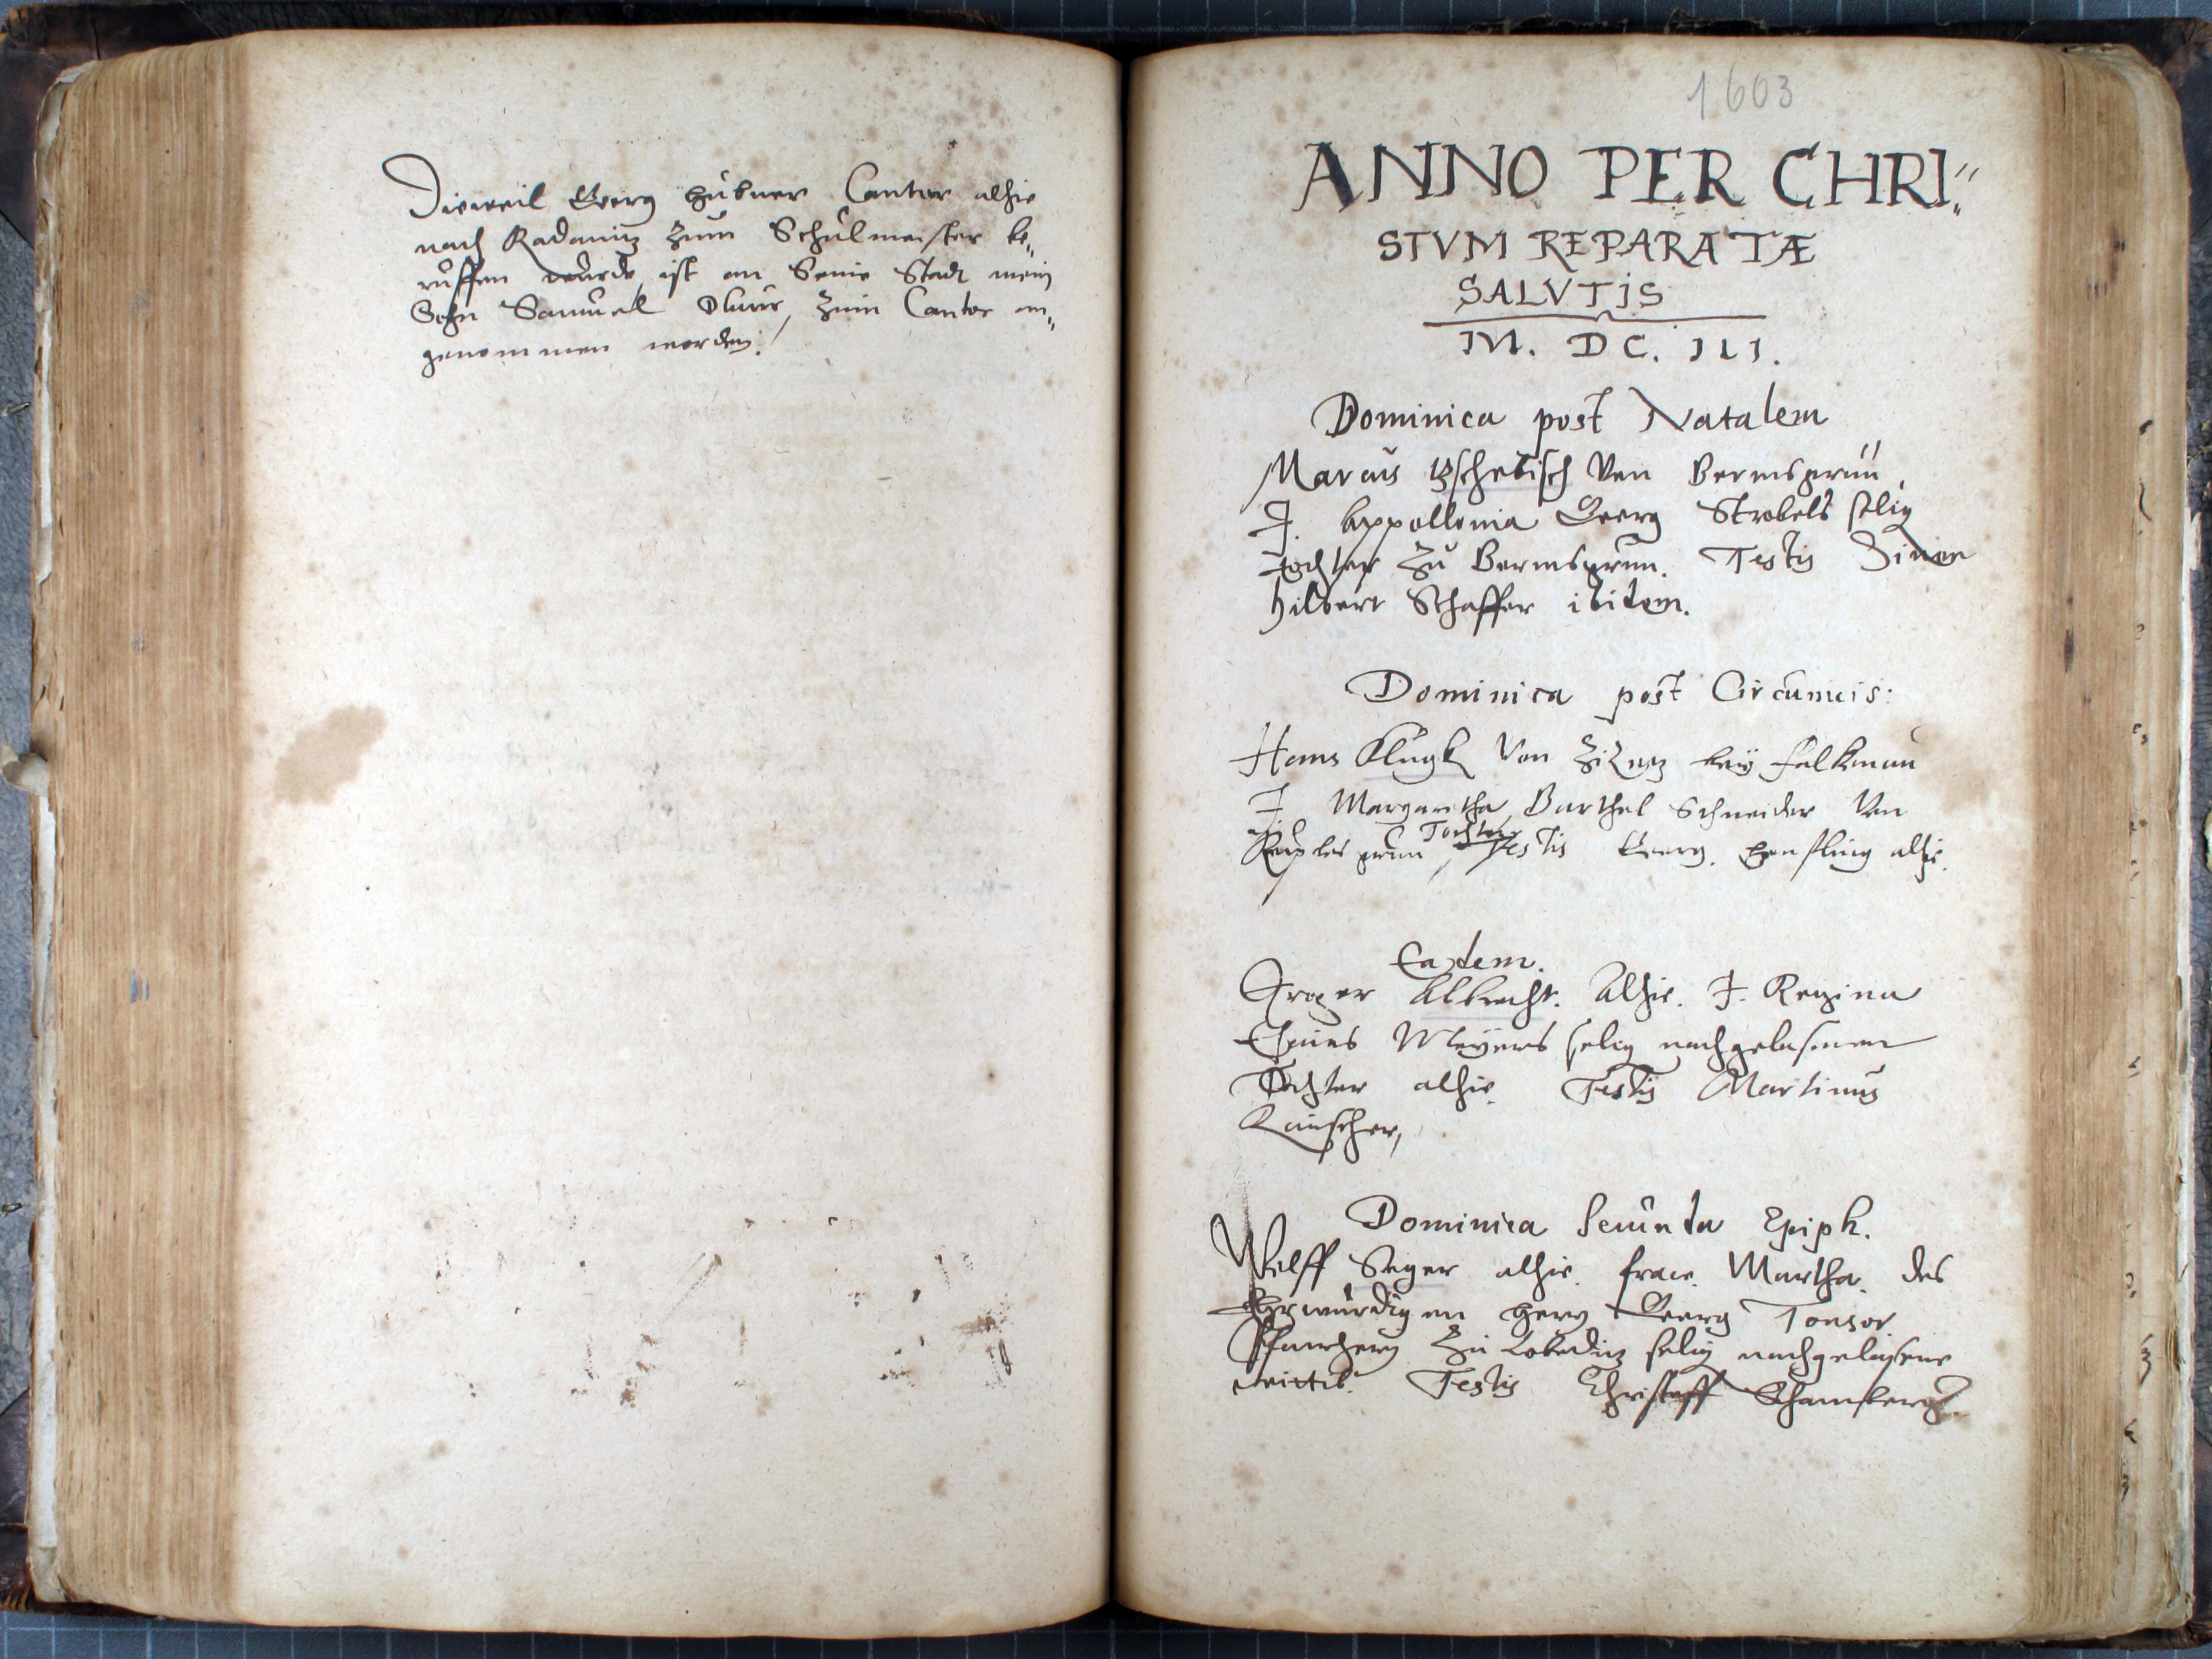 Dieweil Georg Hübner Cantor alhie
nach Radonitz zum Schulmeister be„
ruffen wurde, ist an Seine Stadt mein
Sohn Samuel zum Cantor an„
genommen worden.
1603
ANNO PER CHRI„
STVM REPARATÆ
SALVTIS
M. DC. III.
Dominica post Natalem
Marcus Tzschetisch Von Bermsgrun
F. Appollonia Georg Strobels selig
tochter Zu Bermsgrun. Testis Simon
Hilbert Schaffer ibidem.
Dominica post Circumcis:
Hans Klugk Von bey Falkenau
F. Margaretha Barthel Schneider Von
Tochter
Testis Georg alhie.
Eadem.
Albrecht. Alhie. F. Regina
Meyers selig nachgelasenen
Tochter alhie. Testis Martinus
Rauscher,
Dominica Secunda Epiph.
Wolff Seger alhie. fraw. Martha. des
Ehrwürdigen Hern Georg Tonsor
Pfarhern Zu selig nachgelasene
wittib. Testis Christoff